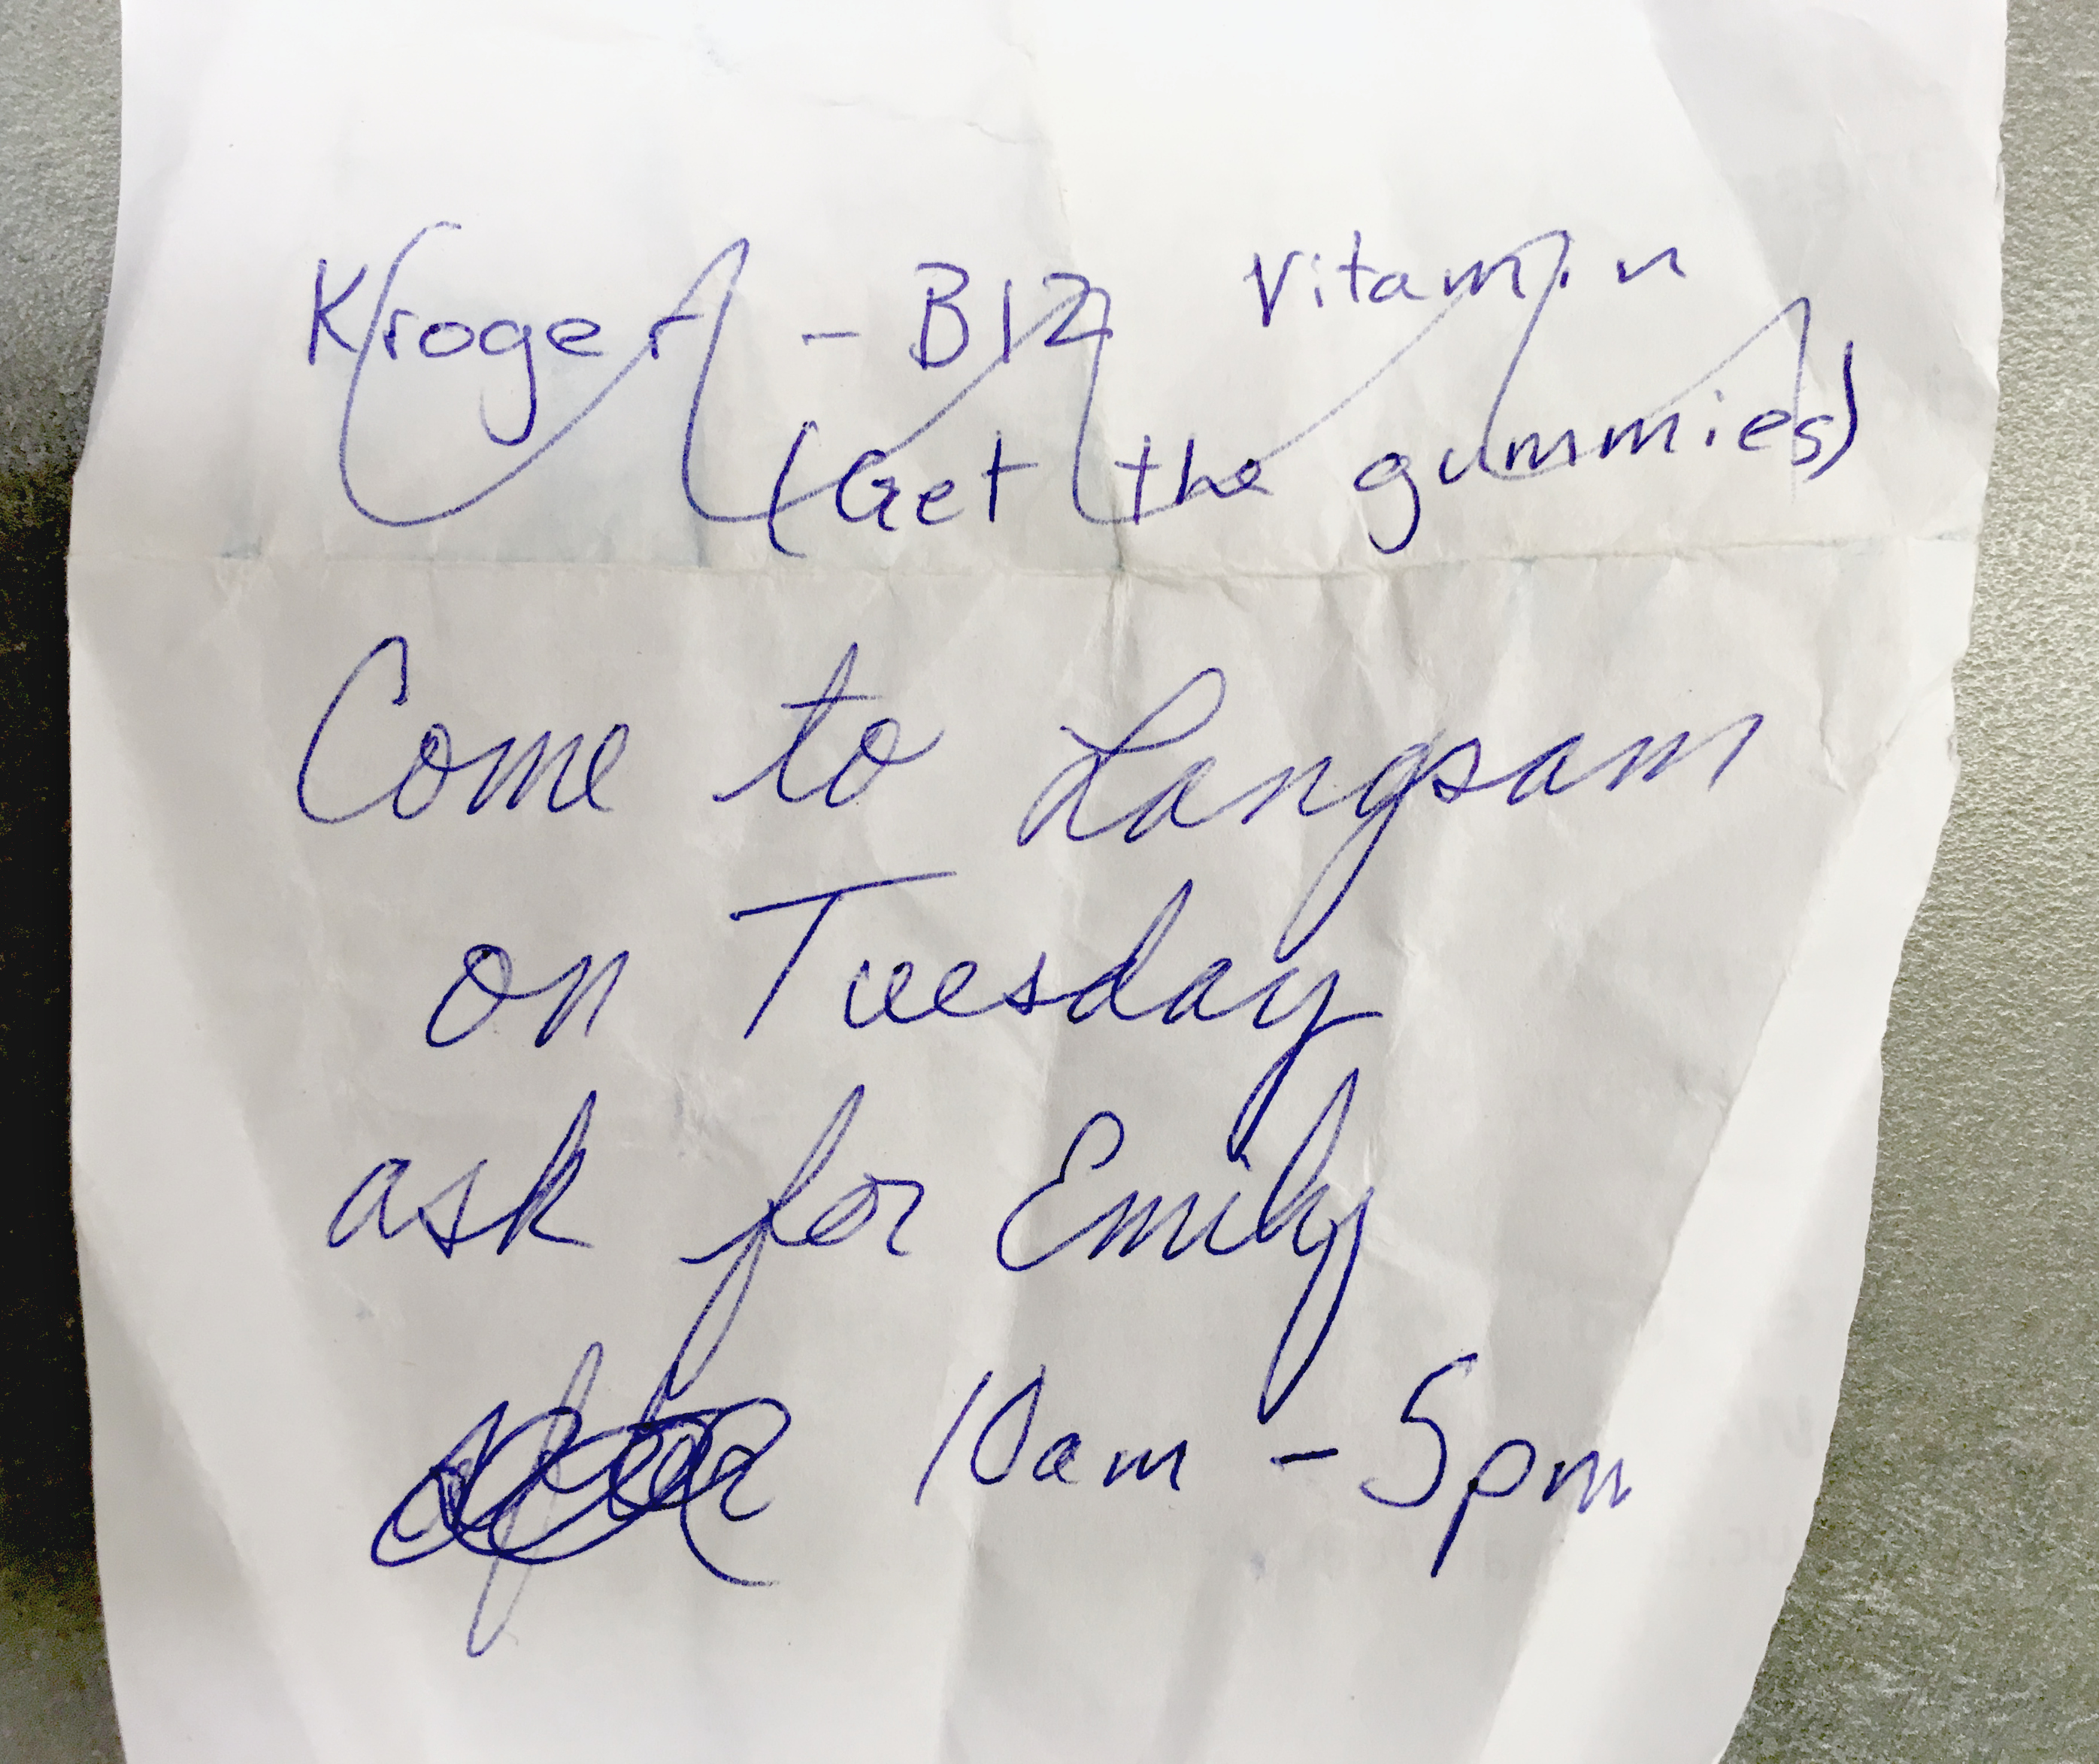 Kroger - B12 Vitamin
(Get the gummies)
Come to Langsam
on Tuesday
ask for Emily
10am - 5pm